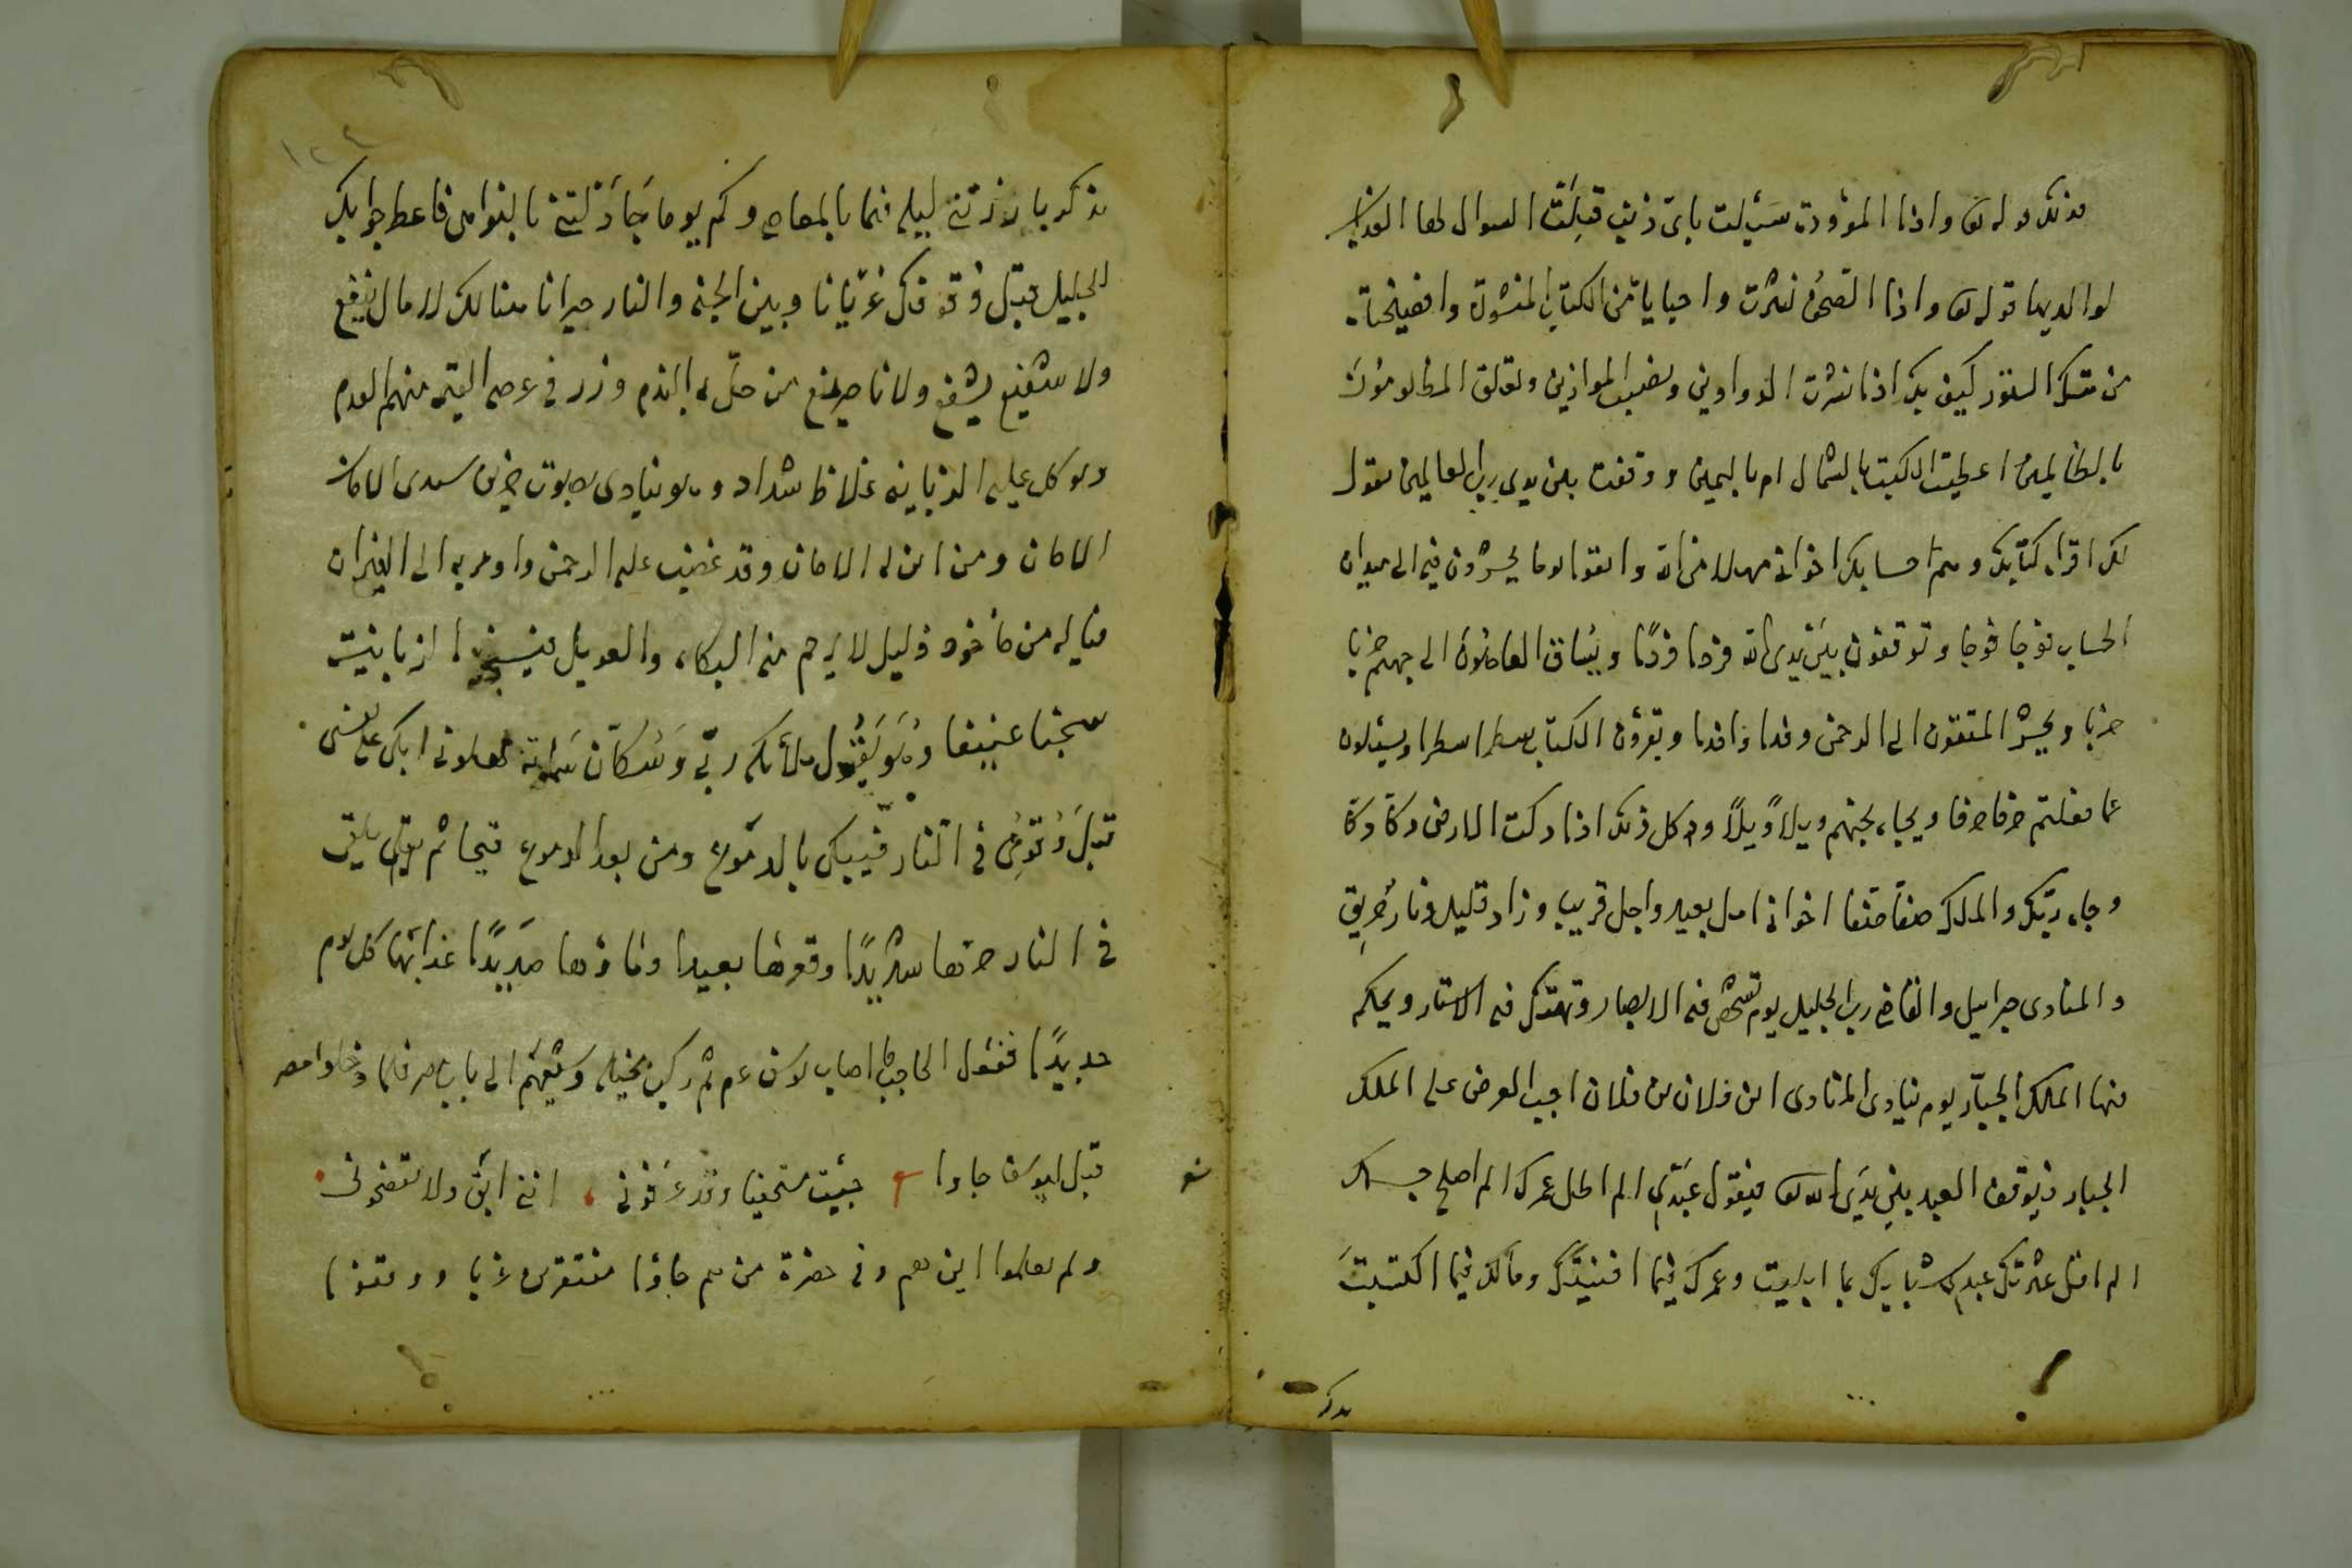 فذلك قوله تع واذا الموؤدة سئلت باى ذنب قتلت السوال لها العذاب
لوالديها قوله تع واذا الصحف نشرت واحيايا من الكتاب المنشورة وافضيحتاه
من هتك الستور كيف بك اذا نشرت الدواوين ونصبت الموازين وتعلق المظلومون
بالظالمين اعطيت الكتب بالشمال ام باليمين ووقفت بين يدى رب العالمين يقول
لك اقراء كتابك وهم احسابك اخوانى مهلا من الله واتقوا يوما يحشرون فيه الى ميدان
الحساب فوجا فوجا وتوقفون بين يدى الله فردا فردًا ويساق العاصون الى جهنم حزبا
حزبا ويحشر المتقون الى الرحمن وفدا وافدا ويقرؤن الكتاب سطرا سطرا ويسئلون
عما فعلتم حرفا حرفا ويجاء بجهنم ويلاً ويلاً وكل ذلك اذا دكت الارض دكاً دكاً
وجاء ربك والملك صفاً صفا اخوانى امل بعيد واجل قريب وزاد قليل ونار حريق
والمنادى جبرايل والقاضى رب الجليل يوم تشخص فيه الابصار وتهتك فيه الاستار ويحكم
فيها الملك الجبّار يوم ينادى المنادى اين فلان بن فلان اجب العرض على الملك
الجبار فيوقف العبد بين يدى الله تع فيقول عبدى الم اطل عمرك الم اصلح جسمك
الم اقل عثرتك عبدى شبابك بما ابليت وعمرك فيما افنيتك ومالك فيما اكتسبت
تذكر
تذكر بارزتنى ليلة فيما بالمعاصى وكم يوما جادلتنى بالنواهى فاعط جوابك
الجليل قبل وقوفك عريانا وبين الجنة والنار حيرانا هنالك لا مال ينفع
ولا شفيع يشفع ولا ناصر من حلّ به الندم وزر فى عرصة القيمة منهم القدم
ووكل عليه الزبانية غلاظ شداد وهو ينادى بصوت حزين سيدى الامان
الامان ومن اين له الامان وقد غضب عليه الرحمن واومر به الى النيران
فيا له من ماخوذ ذليل لا يرحم منه البكاء والعويل الزبانية
سحبا عنيفا وهو يقول ملائكة ربى وسكان سمواته ابكى على نفسى
قبل وقوعى فى النار فيبكى بالدموع ومن بعد الدموع قيحا ثم يلقى
فى النار حرها شديدًا وقعرها بعيدا وماؤها صديدًا عذابها كل يوم
جديدًا فنقول اصاب يوسف عم ثم ركب بخيله وشيعهم الى باب مصر فلما دخلوا مصر
قبل ليوسف جاوا جيئت مستخفيا وقد عرفونى اننى ابق ولا تفضحونى
ولم يعلموا اين هم وفى حضرة من هم جاؤا مفتقرين عزبا ووقفوا